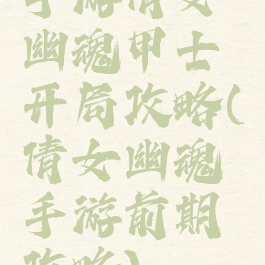 手游倩女
幽魂甲士
开局攻略(
倩女幽魂
手游前期
攻略)